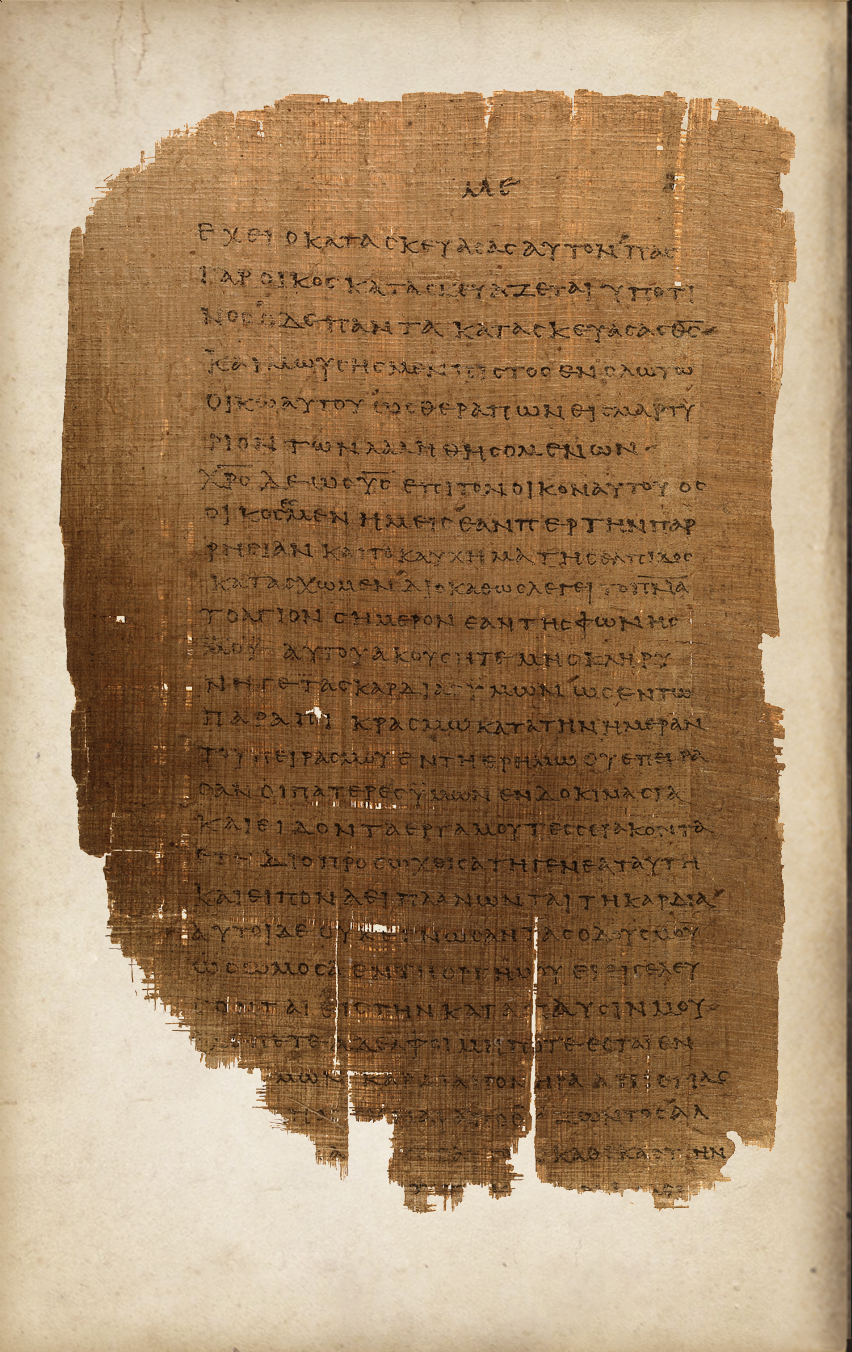 ΜΕ
ΕΧΕΙ Ο ΚΑΤΑΣΚΕΥΑΣΑΣ ΑΥΤΟΝ ΠΑΣ
ΓΑΡ ΟΙΚΟΣ ΚΑΤΑΣΚΕΥΑΖΕΤΑΙ ΥΠΟ ΤΙ
ΝΟΣ Ο ΔΕ ΠΑΝΤΑ ΚΑΤΑΣΚΕΥΑΣΑΣ Θ̅Σ̅
ΚΑΙ ΜΩΥΣΗΣ ΜΕΝ ΠΙΣΤΟΣ ΕΝ ΟΛΩ ΤΩ
ΟΙΚΩ ΑΥΤΟΥ ΩΣ ΘΕΡΑΠΩΝ ΕΙΣ ΜΑΡΤΥ
ΡΙΟΝ ΤΩΝ ΛΑΛΗΘΗΣΟΜΕΝΩΝ
Χ̅Ρ̅Σ̅ ΔΕ ΩΣ Υ̅Σ̅ ΕΠΙ ΤΟΝ ΟΙΚΟΝ ΑΥΤΟΥ ΟΣ
ΟΙΚΟΣ ΕΣΜΕΝ ΗΜΕΙΣ ΕΑΝΠΕΡ ΤΗΝ ΠΑΡ
ΡΗΣΙΑΝ ΚΑΙ ΤΟ ΚΑΥΧΗΜΑ ΤΗΣ ΕΛΠΙΔΟΣ
ΚΑΤΑΣΧΩΜΕΝ ΔΙΟ ΚΑΘΩΣ ΛΕΓΕΙ ΤΟ Π̅Ν̅Α̅
ΤΟ ΑΓΙΟΝ ΣΗΜΕΡΟΝ ΕΑΝ ΤΗΣ ΦΩΝΗΣ
ΑΥΤΟΥ ΑΚΟΥΣΗΤΕ ΜΗ ΣΚΛΗΡΥ
ΝΗΤΕ ΤΑΣ ΚΑΡΔΙΑΣ ΥΜΩΝ ΩΣ ΕΝ ΤΩ
ΠΑΡΑΠΙΚΡΑΣΜΩ ΚΑΤΑ ΤΗΝ ΗΜΕΡΑΝ
ΤΟΥ ΠΕΙΡΑΣΜΟΥ ΕΝ ΤΗ ΕΡΗΜΩ ΟΥ ΕΠΕΙΡΑ
ΣΑΝ ΟΙ ΠΑΤΕΡΕΣ ΥΜΩΝ ΕΝ ΔΟΚΙΜΑΣΙΑ
ΚΑΙ ΕΙΔΟΝ ΤΑ ΕΡΓΑ ΜΟΥ ΤΕΣΣΕΡΑΚΟΝΤΑ
ΕΤΗ ΔΙΟ ΠΡΟΣΩΧΘΙΣΑ ΤΗ ΓΕΝΕΑ ΤΑΥΤΗ
ΚΑΙ ΕΙΠΟΝ ΑΕΙ ΠΛΑΝΩΝΤΑΙ ΤΗ ΚΑΡΔΙΑ
ΑΥΤΟΙ ΔΕ ΟΥΚ ΕΓΝΩΣΑΝ ΤΑΣ ΟΔΟΥΣ ΜΟΥ
ΩΣ ΩΜΟΣΑ ΕΝ ΤΗ ΟΡΓΗ ΜΟΥ ΕΙ ΕΙΣΕΛΕΥ
ΣΟΝΤΑΙ ΕΙΣ ΤΗΝ ΚΑΤΑΠΑΥΣΙΝ ΜΟΥ
ΒΛΕΠΕΤΕ ΑΔΕΛΦΟΙ ΜΗΠΟΤΕ ΕΣΤΑΙ ΕΝ
ΥΜΩΝ ΚΑΡΔΙΑ ΠΟΝΗΡΑ ΑΠΙΣΤΙΑΣ
ΖΩΝΤΟΣ ΑΛ
ΚΑΘ ΕΚΑΣΤΗΝ